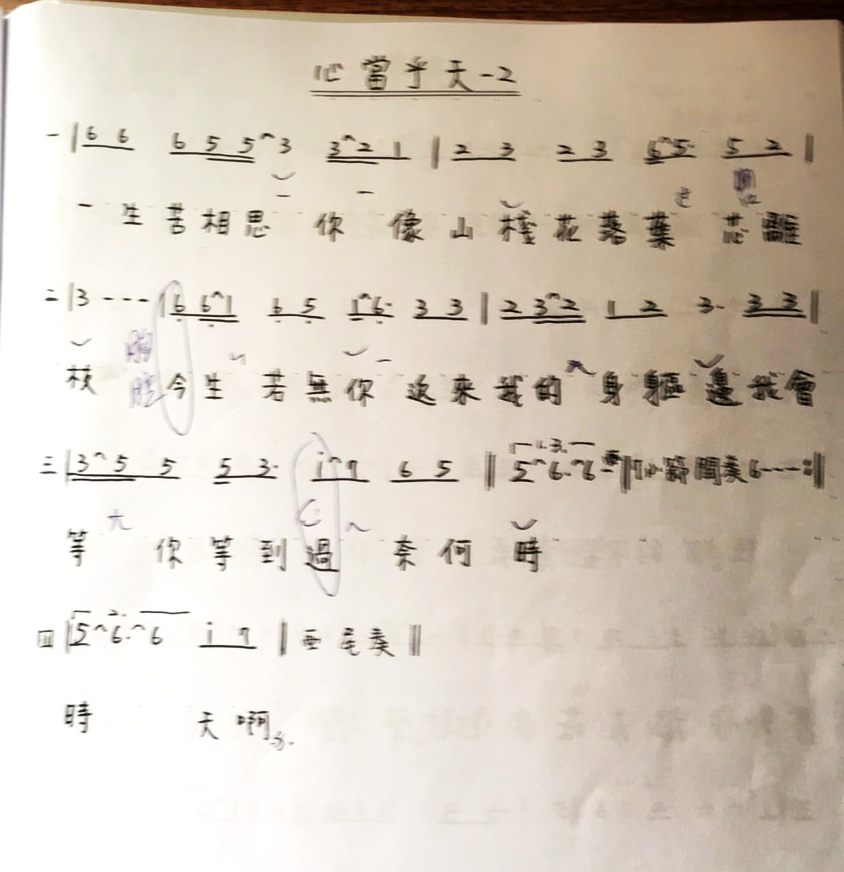 心當乎天-2
一 | 6 6 6 5 5^3 3^2 1 | 2 3 2 3 6^5· 5 2 |
一生苦相思 你 像山棧花落葉 芯離
二 | 3 - - - | 6 6^1 6 5 1^6· 3 3 | 2 3^2 1 2 3· 3 3 |
枝 今生 若無你 返來我的 身軀邊我會
三 | 3^5 5 5 3· i^7 6 5 || 5^6·^6 - || 間奏 6 - - - - :||
等 你等到過 奈何 時
四 | 5^6·^6 i 7 | 尾奏 ||
時 天啊